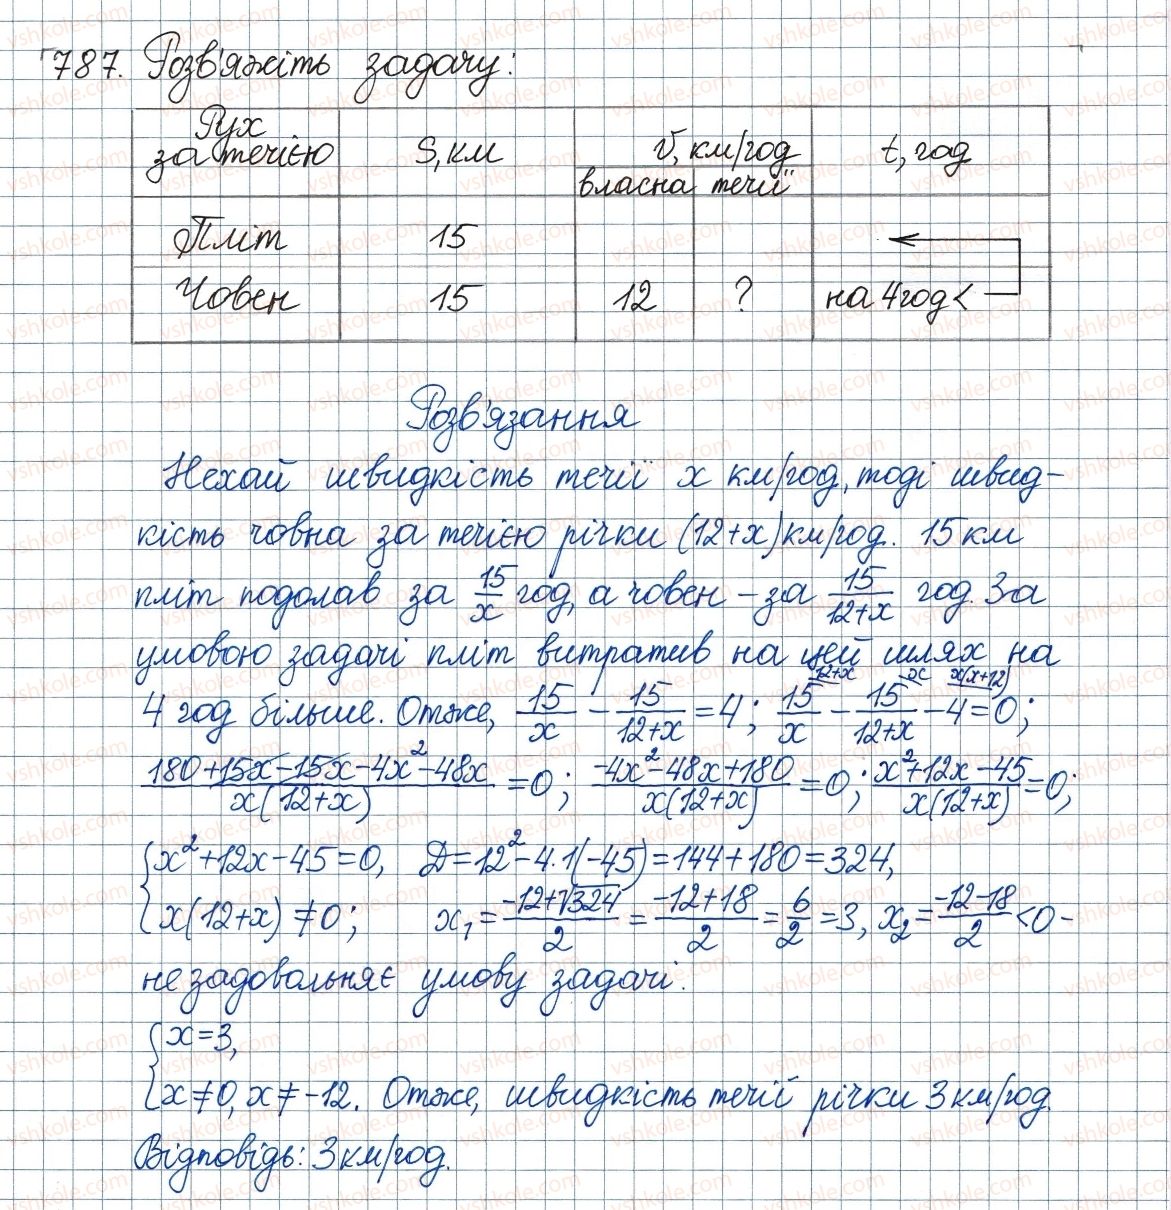 787. Розв'яжіть задачу:
Рух за течією S, км V, км/год t, год
власна течії
Пліт 15
Човен 15 12 ? на 4 год <
Розв'язання
Нехай швидкість течії x км/год, тоді швид-
кість човна за течією річки (12+x) км/год. 15 км
пліт подолав за 15/x год, а човен – за 15/(12+x) год. За
умовою задачі пліт витратив на цей шлях на
4 год більше. Отже, 15/x − 15/(12+x) = 4; 15/x (12+x) − 15/(12+x) (x) − 4 (x(x+12)) = 0;
(180+15x−15x−4x²−48x)/(x(12+x)) = 0; (−4x²−48x+180)/(x(12+x)) = 0; (x²+12x−45)/(x(12+x)) = 0;
{x²+12x−45=0, Д=12²−4·1(−45)=144+180=324,
{x(12+x) ≠0; x₁ = (−12+√324)/2 = (−12+18)/2 = 6/2 = 3, x₂ = (−12−18)/2 <0 –
не задовольняє умову задачі.
{x=3,
{x≠0, x≠−12. Отже, швидкість течії річки 3 км/год.
Відповідь: 3 км/год.
vshkole.com